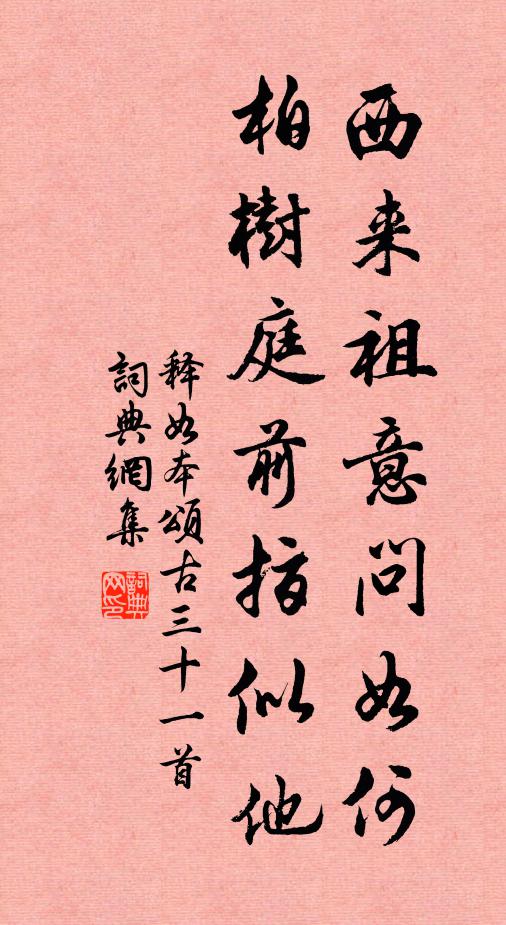 西来祖意問如何
柏樹庭前指似他
释如本頌古三十一首
詞典網集
詞典網印